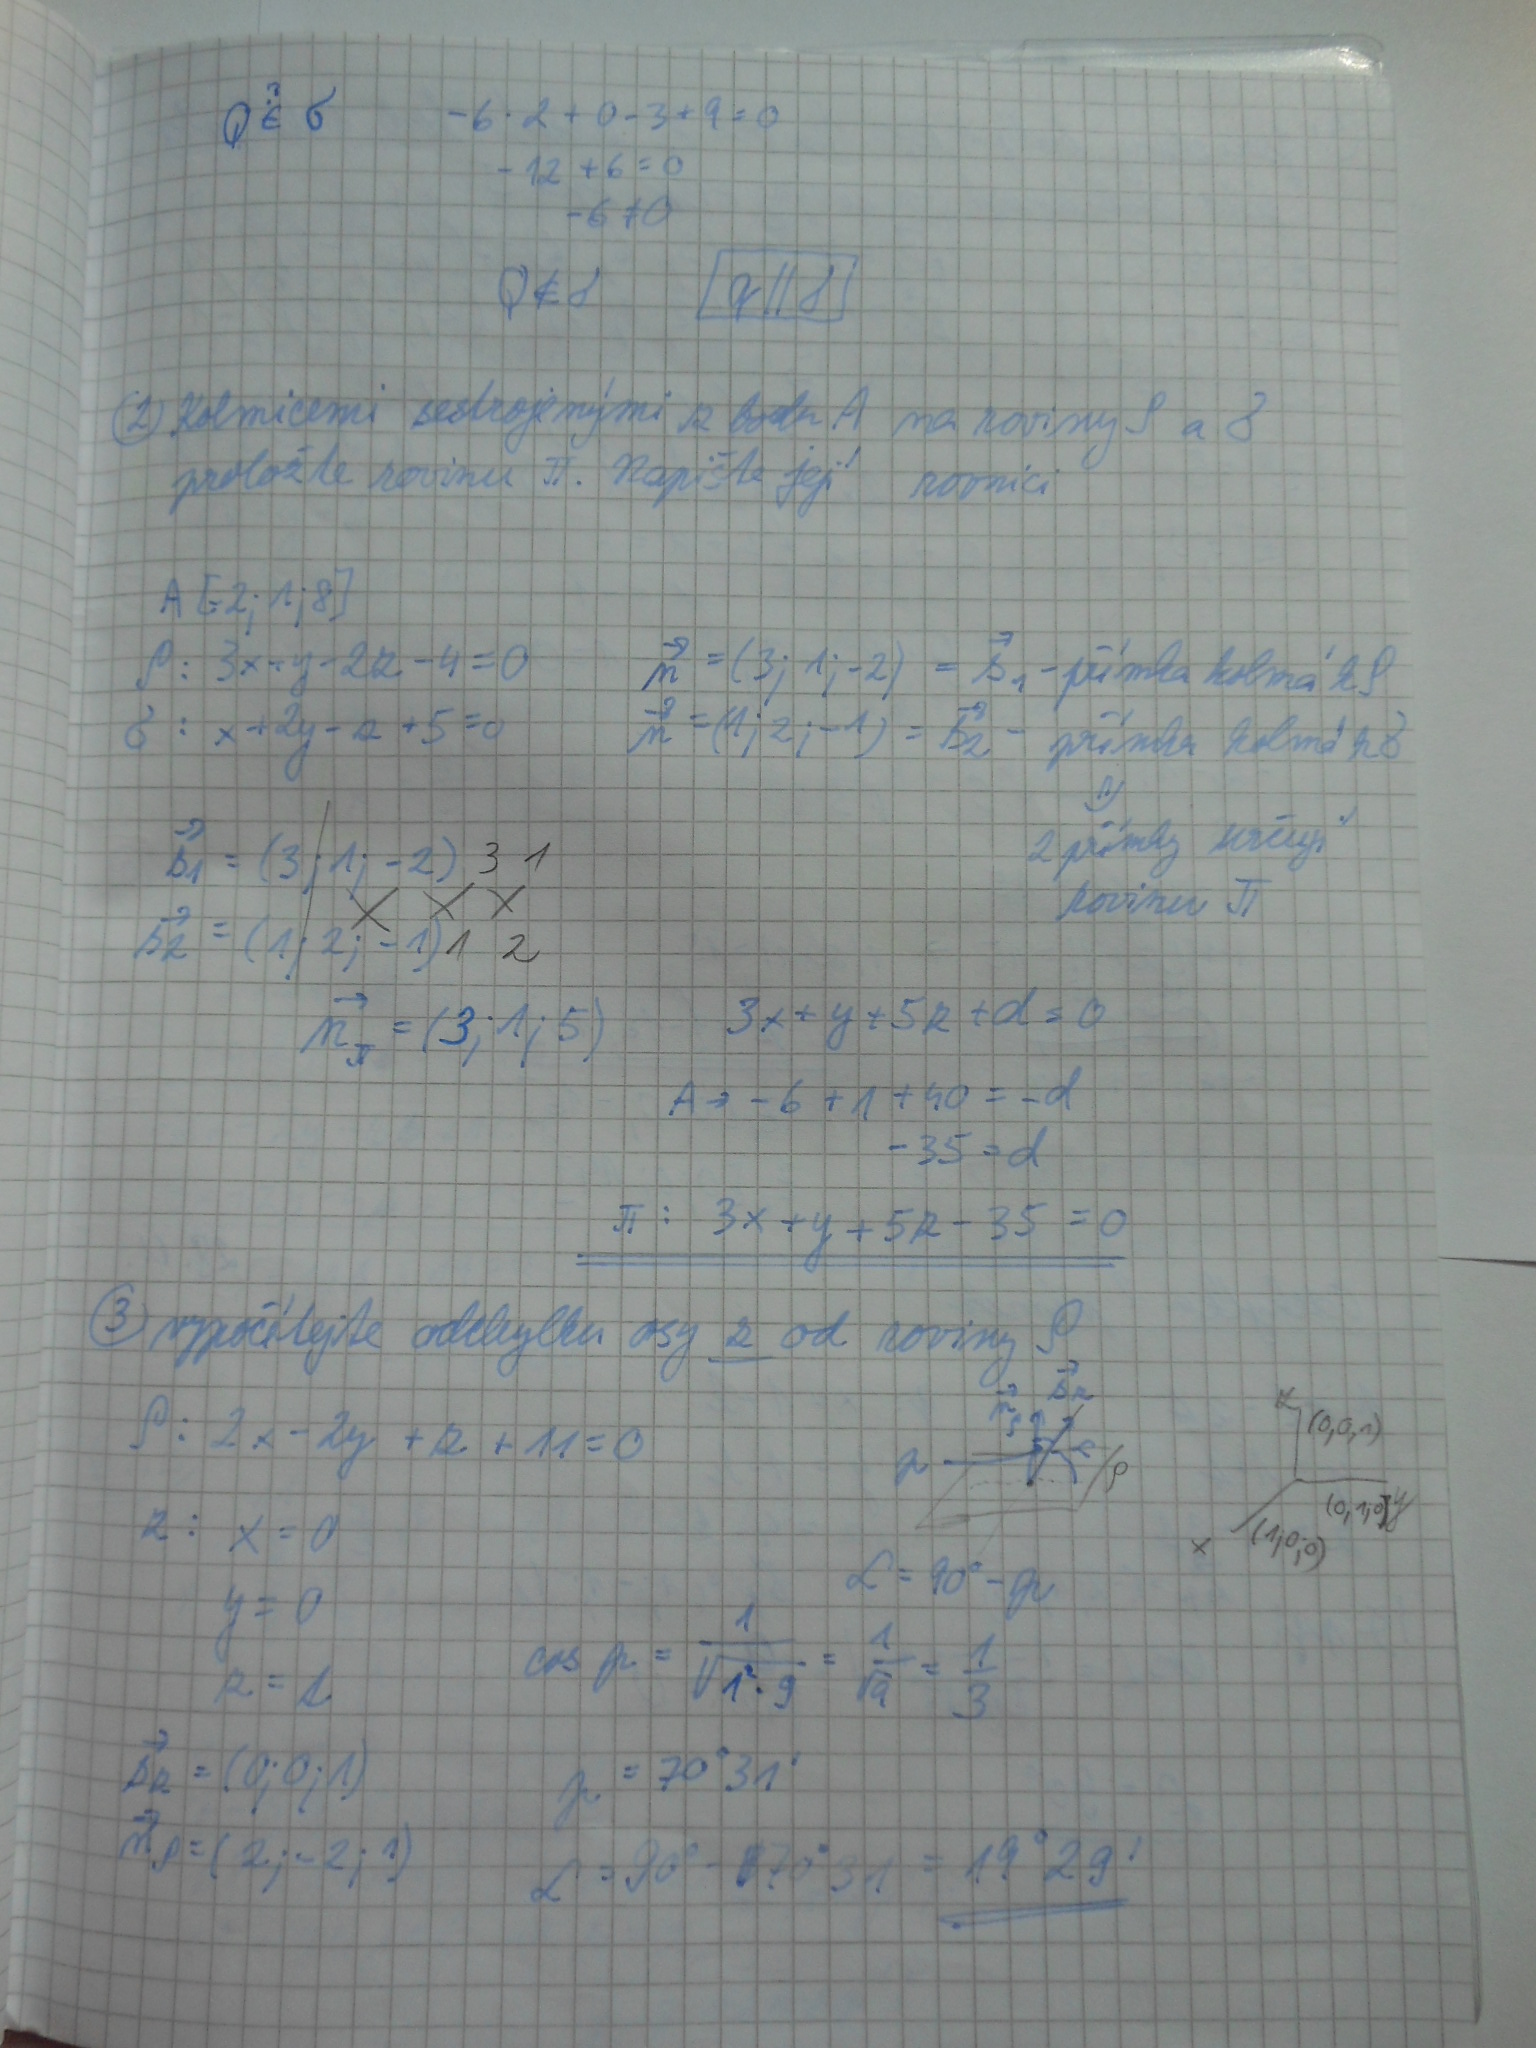 Q ∈? σ    -6·2+0-3+9=0
-12+6=0
-6≠0
Q∉σ    q||σ
② Kolmicemi sestrojenými z bodu A na roviny ρ a σ
proložte rovinu π. Napište její rovnici
A[-2;1;8]
ρ: 3x+y-2z-4=0    n⃗=(3;1;-2) = s⃗₁ - přímka kolmá k ρ
σ: x+2y-z+5=0    n⃗=(1;2;-1) = s⃗₂ - přímka kolmá k σ
⇓
s⃗₁ = (3;1;-2) 3 1    2 přímky určují
rovinu π
s⃗₂ = (1;2;-1) 1 2
n⃗π = (3;1;5)    3x+y+5z+d=0
A → -6+1+40=-d
-35=d
π: 3x+y+5z-35=0
③ vypočítejte odchylku osy z od roviny ρ
n⃗ρ s⃗z
z (0,0,1)
ρ: 2x-2y+z+11=0    p    α    ρ
(0,1,0) y
x (1;0;0)
z: x=0
α = 90°-φ
y=0
cos φ = 1/√(1²·9) = 1/√9 = 1/3
z=1
s⃗z = (0;0;1)    φ = 70°31'
n⃗ρ = (2;-2;1)    α = 90°-70°31 = 19°29'